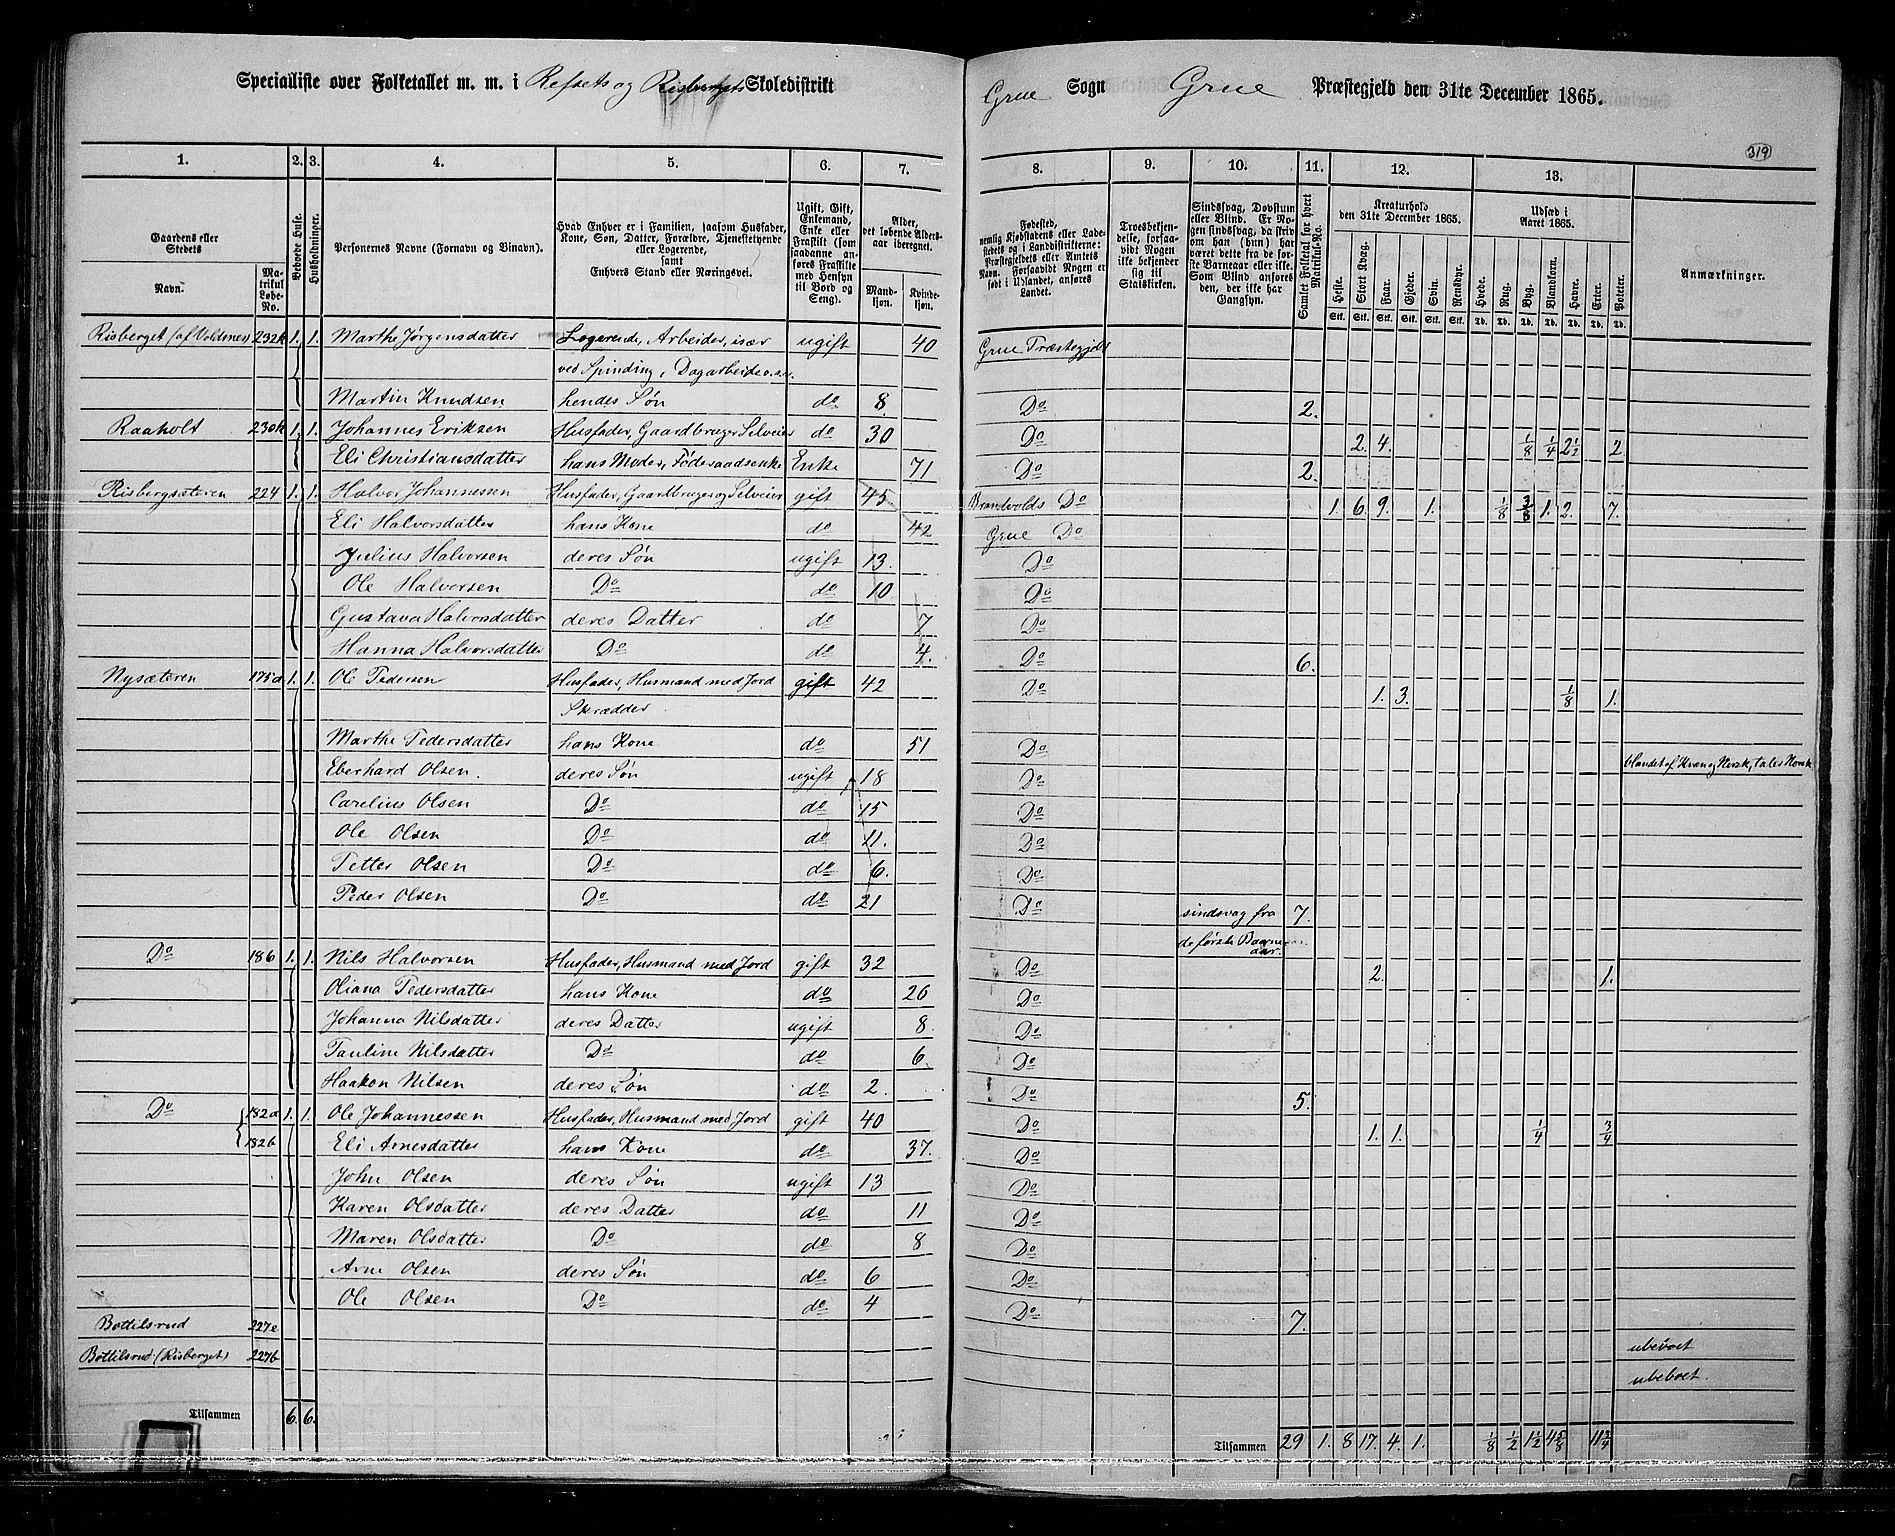 Specialliste over Folketallet m. m. i Refsets og Risbergets Skoledistrikt
Grue Sogn Grue Præstegjeld den 31te December 1865.
319
1. 2. 3. 4. 5. 6. 7. 8. 9. 10. 11. 12. 13.
Gaardens eller Stedets
Navn.
Matrikul Løbe-No.
Beboede Huse.
Husholdninger.
Personernes Navne (Fornavn og Binavn).
Hvad Enhver er i Familien, saasom Husfader, Kone, Søn, Datter, Forældre, Tjenestetyende eller Logerende, samt Enhvers Stand eller Næringsvei.
Ugift, Gift, Enkemand, Enke eller Fraskilt (som saadanne anføres Fraskilte med Hensyn til Bord og Seng).
Alder, det løbende Alders-aar iberegnet.
Mand-kjøn. Kvinde-kjøn.
Fødested, nemlig Kjøbstadens eller Ladestedets og i Landdistrikterne: Præstegjeldets eller Amtets Navn. Forsaavidt Nogen er født i Udlandet, anføres Landet.
Troesbekjendelse, forsaavidt Nogen ikke bekjender sig til Statskirken.
Sindssvag, Døvstum eller Blind. Er Nogen sindssvag, da skriv om han (hun) har været dette fra de første Barneaar eller ikke. Som Blind anføres den, der ikke har Gangsyn.
Samlet Folketal for hvert Matrikul-No.
Kreaturhold den 31te December 1865.
Heste. Stort Kvæg. Faar. Gjeder. Svin. Rensdyr.
Udsæd i Aaret 1865.
Hvede. Rug. Byg. Blandkorn. Havre. Erter. Poteter.
Anmærkninger.
Stk. Stk. Stk. Stk. Stk. Stk. Td. Td. Td. Td. Td. Td. Td.
Risberget (af Voldmes) 232k 1. 1. Marthe Jørgensdatter Logerende, Arbeider, især ugift 40 Grue Præstegjeld
ved Spinding, Dagarbeide o.s.v.
Martin Knudsen hendes Søn do 8. Do 2.
Raaholt 230k 1. 1. Johannes Eriksen Husfader, Gaardbruger Selveier do 30 Do 2. 4. 1/8 1/4 2 1/2 2.
Eli Christiansdatter hans Moder, Føderaadsenke Enke 71 Do 2.
Risbergsæteren 224 1. 1. Halvor Johannessen Husfader, Gaardbruger og Selveier gift 45 Brandvolds Do 1. 6. 9. 1. 1/8 3/8 1. 2. 7.
Eli Halvorsdatter hans Kone do 42 Grue Do
Julius Halvorsen deres Søn ugift 13. Do
Ole Halvorsen Do do 10 Do
Gustava Halvorsdatter deres Datter do 7 Do
Hanna Halvorsdatter Do do 4. Do 6.
Nysæteren 175a 1. 1. Ole Pedersen Husfader, Husmand med Jord gift 42 Do 1. 3. 1/8 1.
Skrædder.
Marthe Pedersdatter hans Kone do 51 Do
Eberhard Olsen. deres Søn ugift 18 Do blandet af Kvæn og Norsk, taler Norsk
Carelius Olsen Do do 15 Do
Ole Olsen Do do 11. Do
Petter Olsen Do do 6. Do
Peder Olsen Do do 21 Do sindsvag fra 7.
de første Baarne
aar.
Do 186 1. 1. Nils Halvorsen Husfader, Husmand med Jord gift 32 Do 2. 1.
Oliana Pedersdatter hans Kone do 26 Do
Johanna Nilsdatter deres Datter ugift 8. Do
Pauline Nilsdatter Do do 6. Do
Haakon Nilsen deres Søn do 2. Do 5.
Do 182a 1. 1. Ole Johannessen Husfader, Husmand med Jord gift 40 Do 1. 1. 1/4 3/4
182b Eli Arnesdatter hans Kone do 37. Do
John Olsen deres Søn ugift 13 Do
Karen Olsdatter deres Datter do 11 Do
Maren Olsdatter Do do 8 Do
Arne Olsen deres Søn do 6 Do
Ole Olsen Do do 4 Do 7.
Bottilsrud 227e ubeboet
Bottilsrud (Risberget) 227b ubeboet.
Tilsammen 6. 6.
Tilsammen 29 1. 8 17. 4. 1. 1/8 1/2 1 1/2 4 5/8 11 3/4